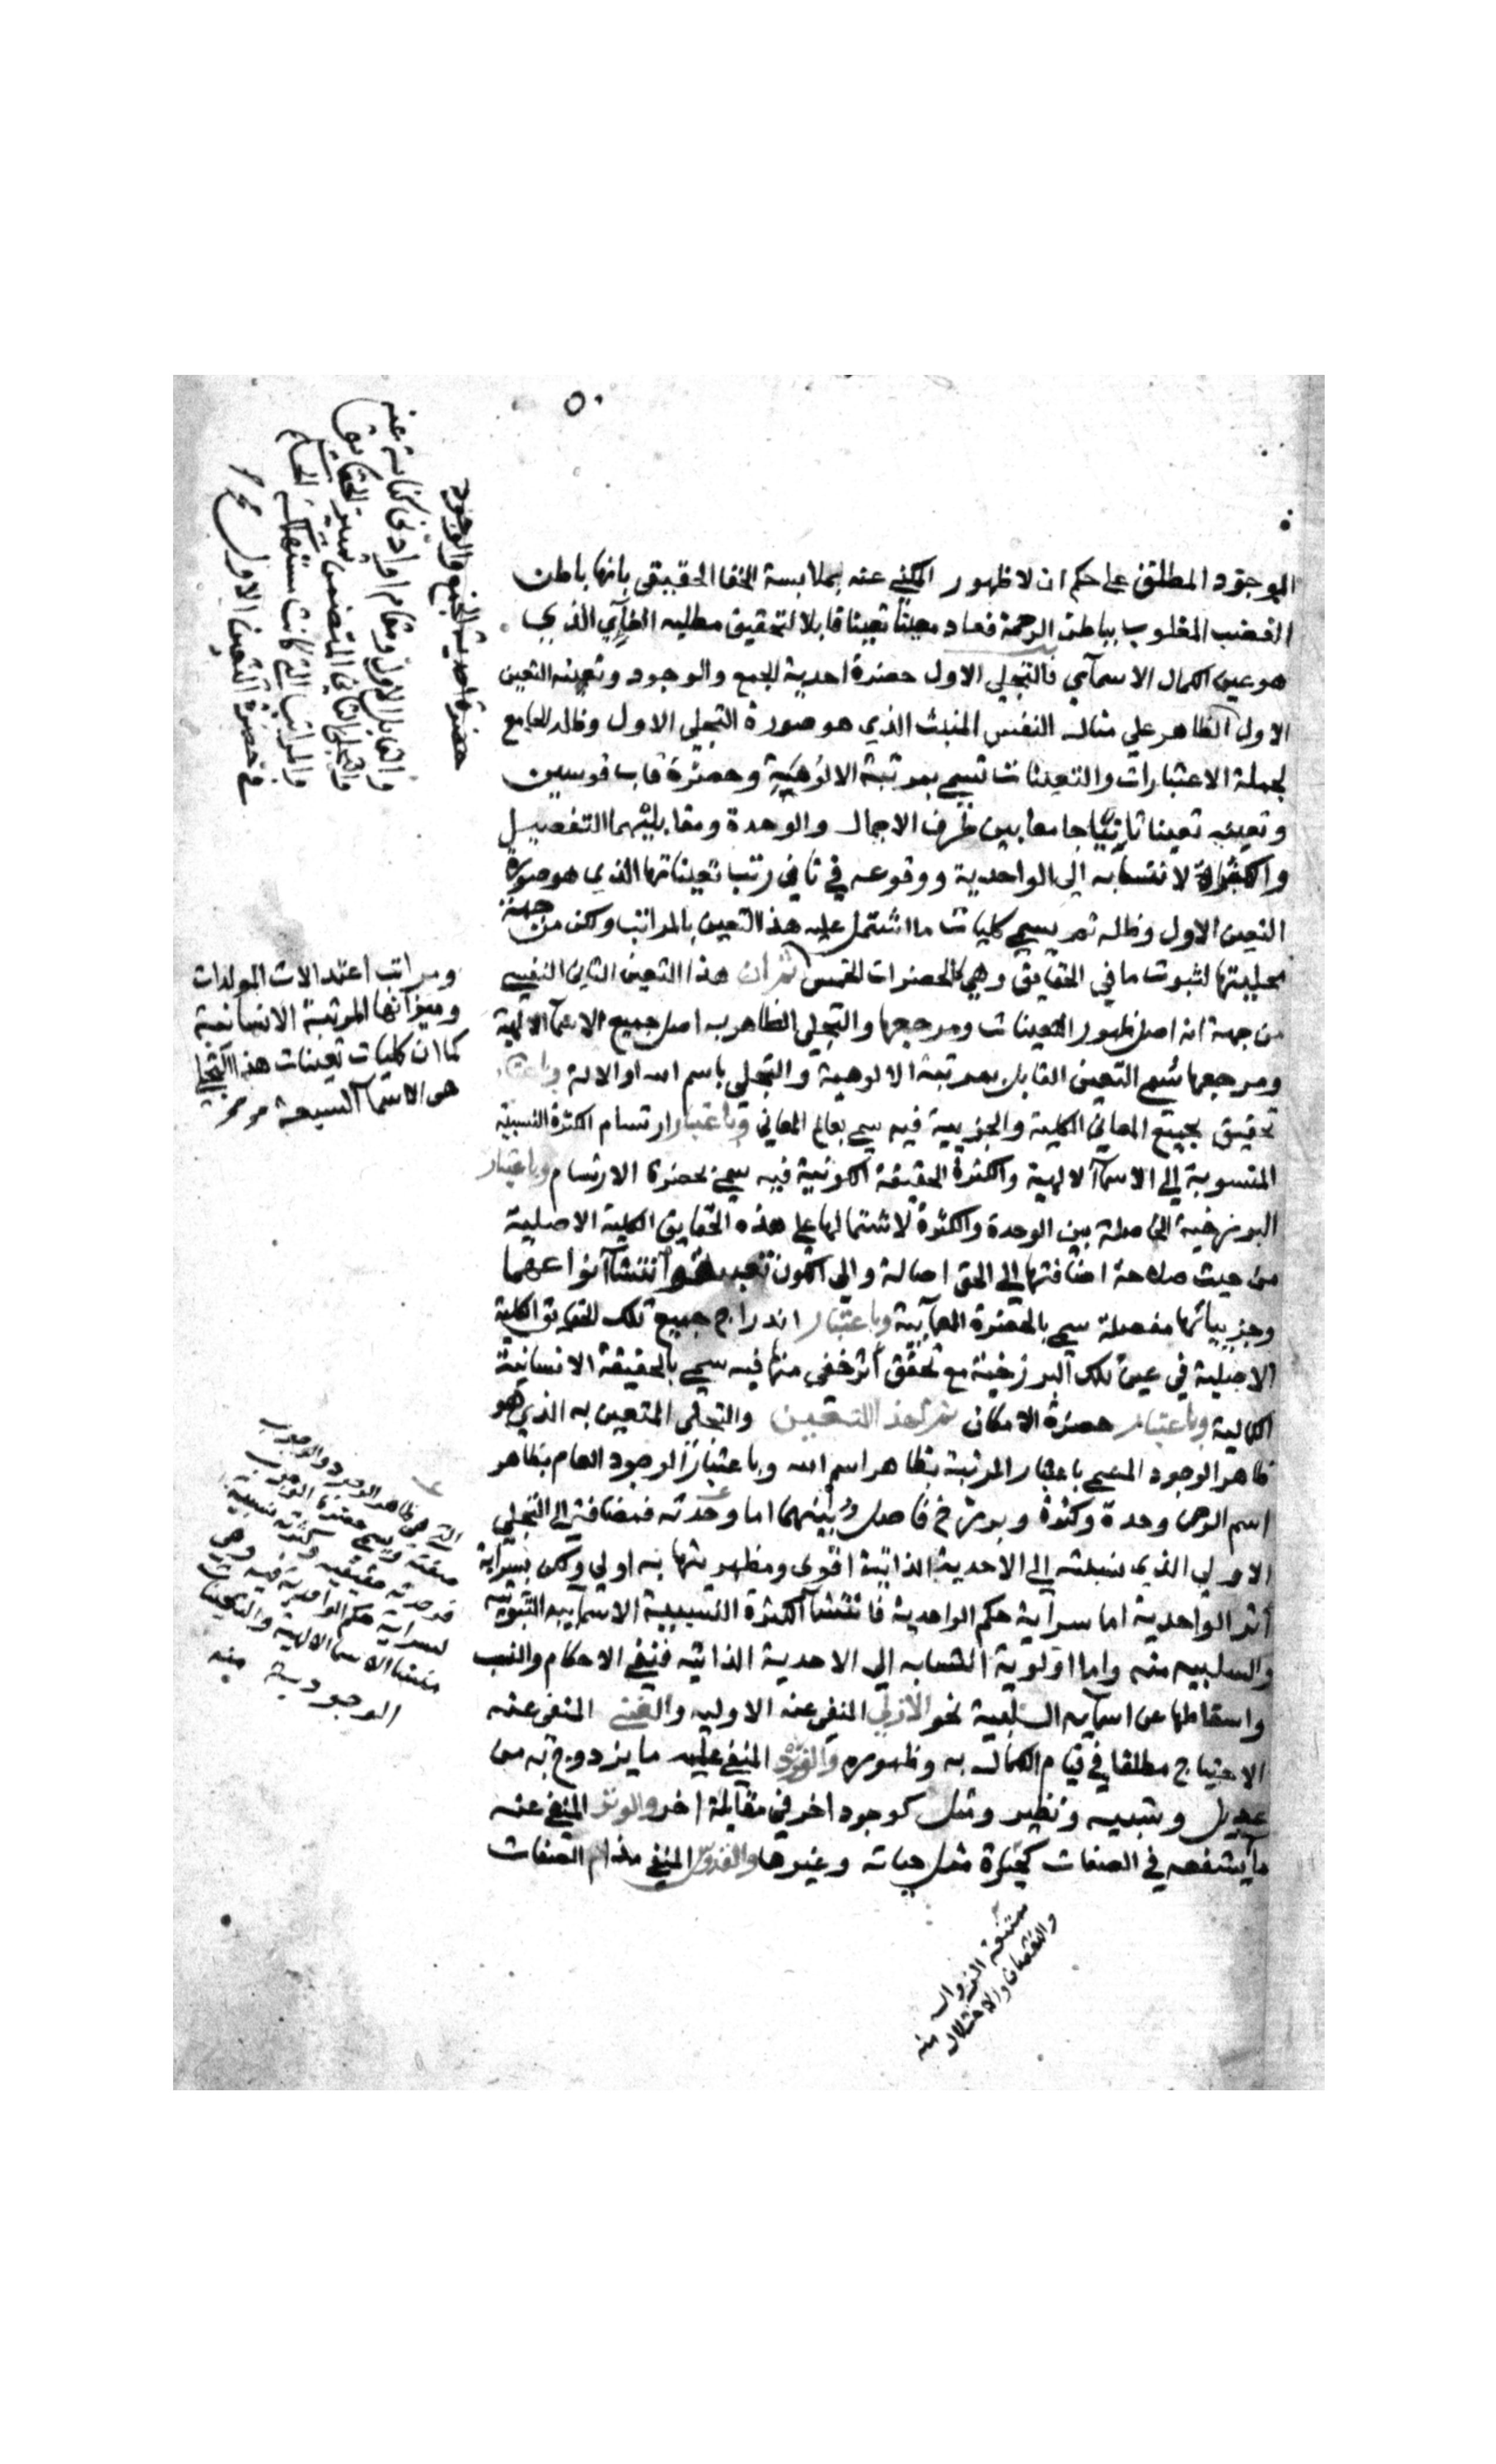 ٥٠
الوجود المطلق على حكم ان لا ظهور المكني عنه بملابسة الخفا الحقيقى بانها باطن
الغضب المغلوب بباطن الرحمة فعاد معينا تعينا قابلا لتحقيق مطلبه الغآي الذي
هو عين الكمال الاسمآي فالتجلي الاول حضرة احدية الجمع والوجود وتعينه التعين
الاول الظاهر علي مثال النفس المنبث الذي هو صورة التجلي الاول وظله الجامع
لجملة الاعتبارات والتعينات تسمي بمرتبة الالوهية وحضرة قاب قوسين
وتعينه تعينا ثانيا جامعا بين طرف الاجمال والوحدة ومقابليهما التفصيل
والكثرة لانتسابه الي الواحدية ووقوعه في ثاني رتب تعيناتها الذي هو صورة
التعين الاول وظله ثم يسمي كليات ما اشتمل عليه هذا التعين بالمراتب ولكن من جهة
محليتها لثبوت ما في الحقايق وهي الحضرات الخمس ثم ان هذا التعين الثاني النفسي
من جهة انه اصل ظهور التعينات ومرجعها والتجلي الظاهر به اصل جميع الاسمآ الالهية
ومرجعها سمي التعين القابل بمرتبة الالوهية والتجلي باسم الله او الاله وباعتبار
تحقيق جميع المعاني الكلية والجزيية فيه سمي بعالم المعاني وباعتبار ارتسام الكثرة النسبية
المنسوبة الي الاسمآ الالهية والكثرة الحقيقة الكونية فيه سمي بحضرة الارتسام وباعتبار
البرزخية الحاصلة بين الوحدة والكثرة لاشتمالها على هذه الحقايق الكلية الاصلية
من حيث صلاحة اضافتها الي الحق اصالة والي الكون وانتشآ انواعها
وجزيياتها مفصلة سمي بالحضرة العمآيية وباعتبار اندراج جميع تلك الحقايق الكلية
الاصلية في عين تلك البرزخية مع تحقق اثر خفي منها فيه سمي بالحقيقة الانسانية
الكمالية وباعتبار حضرة الامكان ثم لهذ التعين والتجلي المتعين به الذي هو
ظاهر الوجود المسمي باعتبار المرتبة بظاهر اسم الله وباعتبار الوجود العام بظاهر
اسم الرحمن وحدة وكثرة وبرزخ فاصل بينهما اما وحدته فمضافة الي التجلي
الاولي الذي نسبته الي الاحدية الذاتية اقوى ومظهريتها به اولي ولكن بسراية
اثر الواحدية اما سراية حكم الواحدية فانتشآ الكثرة النسبية الاسمايية الثبوتية
والسلبيه منه واما اولوية انتسابه الي الاحدية الذاتيه فنفي الاحكام والنسب
واسقاطها عن اسمآيه السلبية نحو الازلي المنفي عنه الاوليه والغني المنفي عنه
الاحتياج مطلقا في قيام الكمال به وظهوره والفرد المنفي عليه ما يزدوج به من
عديل وشبيه ونظير ومثل كوجود اخر في مقابلة اخر والوتر المنفي عنه
ما يشفعه في الصفات كحياة مثل حياته وغيرها والقدوس المنفي الصفات
حضرة احدية الجمع والوجود
والقابل الاول ومقام او ادنى كناية عنه
والتجلي الثاني المتضمن الحقايق
والمراتب التي كانت مستهلكة
في حضرة التعين الاول
ومراتب اعتدالات المولدات
وميزانها المرتبة الانسانية
كما ان كليات تعينات هذا التجلي
هى الاسمآ السبعة
التي هي ظاهر الوجود والوجوب
صفته ويسمي حضرة الوجوب
فوحدته حقيقيه وكثرته نسبية
لسراية حكم الواحدية فيه وهي
منشا الاسما الالهية
الوجودية منه
ممتنعة الزوال
والنقصان والاختلال منه